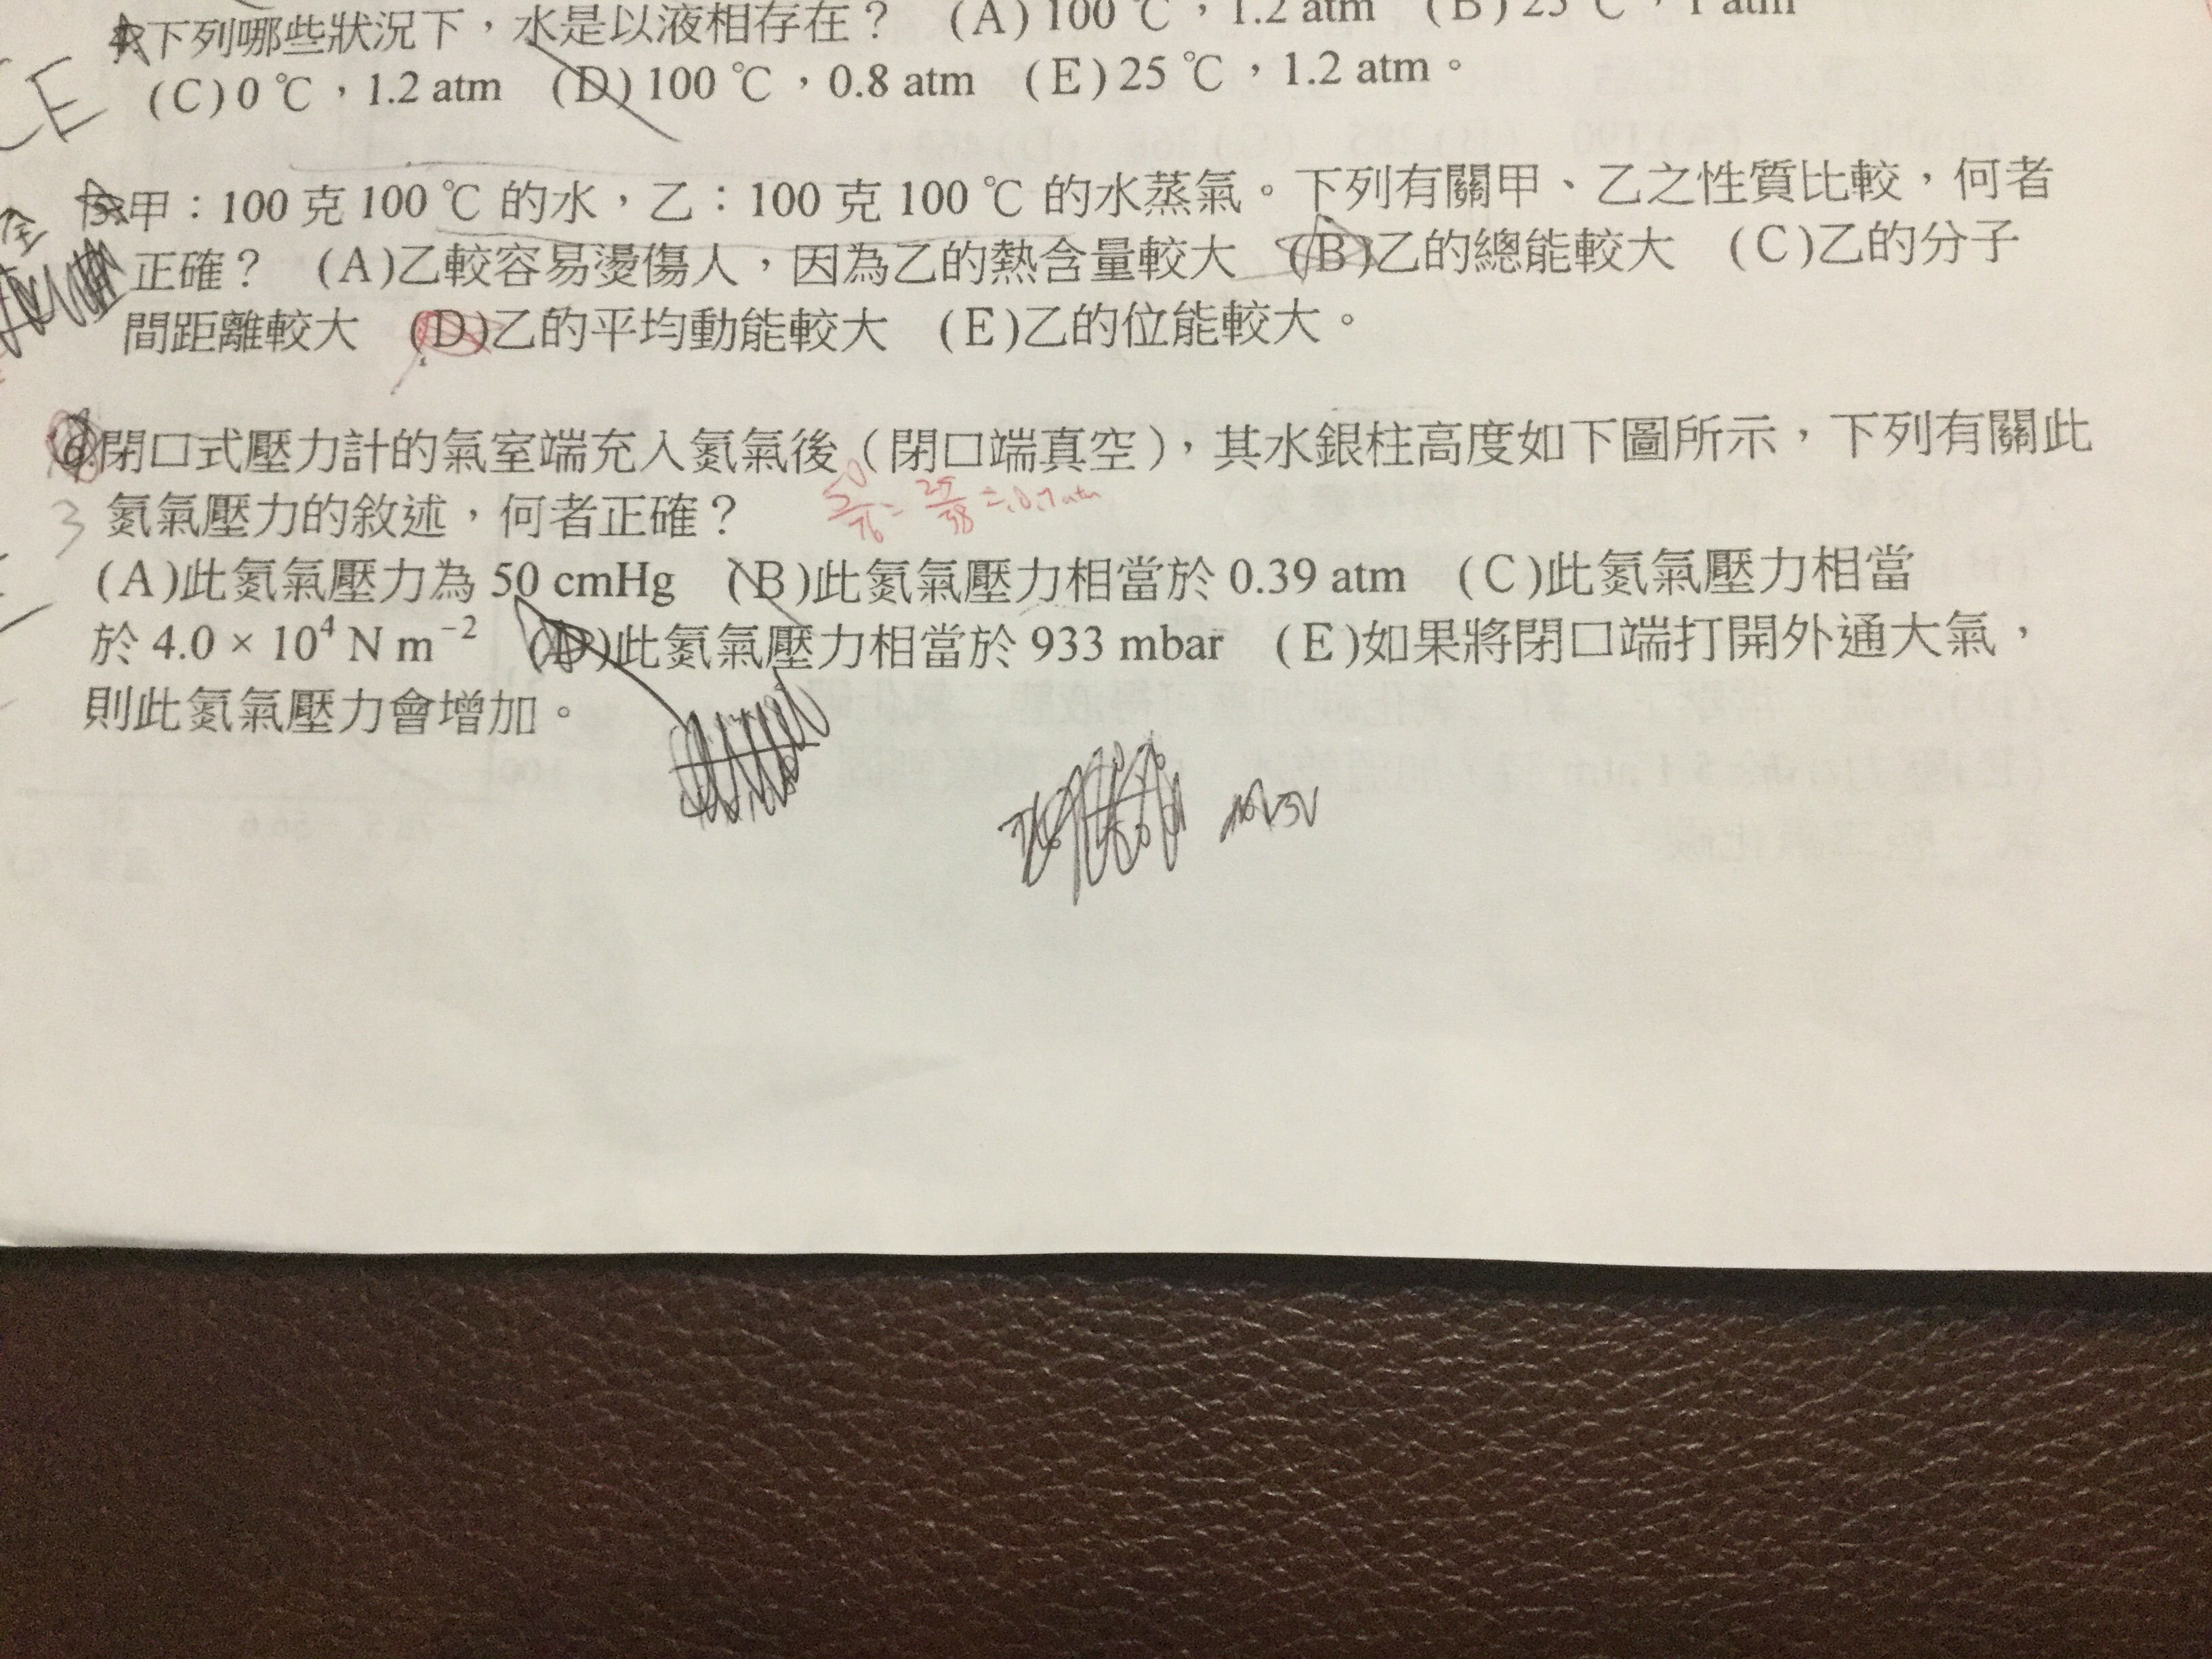 下列哪些狀況下，水是以液相存在？ (A) 100 ℃，1.2 atm (B) 25 ℃，1 atm
CE
(C) 0 ℃，1.2 atm (D) 100 ℃，0.8 atm (E) 25 ℃，1.2 atm。
5. 甲：100 克 100 ℃ 的水，乙：100 克 100 ℃ 的水蒸氣。下列有關甲、乙之性質比較，何者
全
正確？ (A)乙較容易燙傷人，因為乙的熱含量較大 (B)乙的總能較大 (C)乙的分子
間距離較大 (D)乙的平均動能較大 (E)乙的位能較大。
6. 閉口式壓力計的氣室端充入氮氣後（閉口端真空），其水銀柱高度如下圖所示，下列有關此
3 氮氣壓力的敘述，何者正確？ 50/76 = 25/38 ≒ 0.7 atm
(A)此氮氣壓力為 50 cmHg (B)此氮氣壓力相當於 0.39 atm (C)此氮氣壓力相當
於 4.0 × 10⁴ N m⁻² (D)此氮氣壓力相當於 933 mbar (E)如果將閉口端打開外通大氣，
則此氮氣壓力會增加。